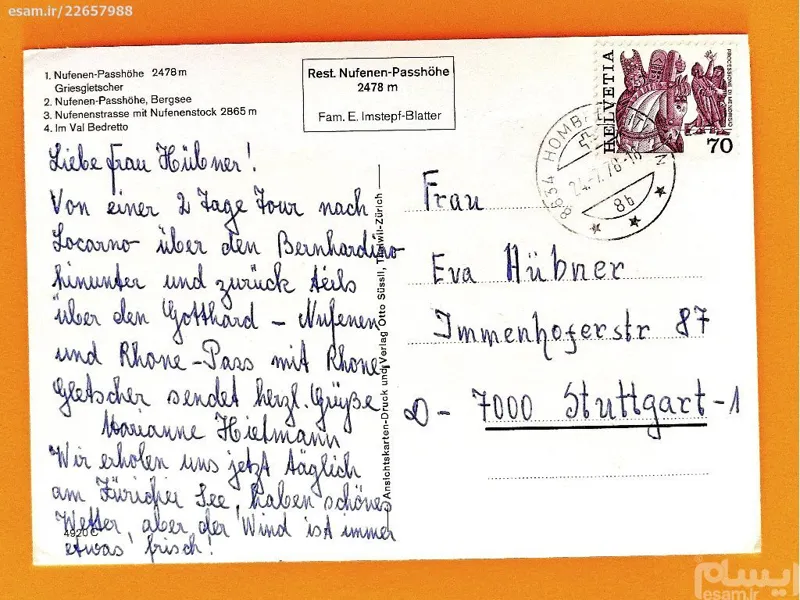 esam.ir/22657988
1. Nufenen-Passhöhe 2478 m
Griesgletscher
2. Nufenen-Passhöhe, Bergsee
3. Nufenenstrasse mit Nufenenstock 2865 m
4. Im Val Bedretto
Rest. Nufenen-Passhöhe
2478 m
Fam. E. Imstepf-Blatter
HELVETIA
PROCESSIONE DI MENDRISIO
70
8634 HOMB
24.-7.78-18
8b
Liebe Frau Hübner!
Von einer 2 Tage Tour nach
Locarno über den Bernhardino
hinunter und zurück teils
über den Gotthard – Nufenen
und Rhone-Pass mit Rhone-
Gletscher sendet herzl. Grüße
Marianne
Wir erholen uns jetzt täglich
am Züricher See, haben schönes
Wetter, aber der Wind ist immer
etwas frisch!
4920 C
Ansichtskarten-Druck und Verlag Otto Süssli, Thalwil-Zürich
Frau
Eva Hübner
Immenhoferstr 87
D - 7000 Stuttgart-1
ایسام
esam.ir